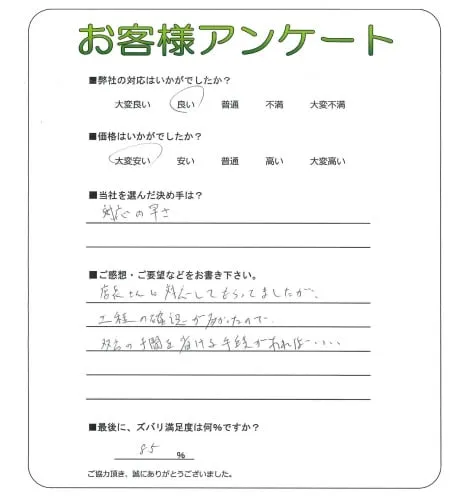 お客様アンケート
■弊社の対応はいかがでしたか？
大変良い 良い 普通 不満 大変不満
■価格はいかがでしたか？
大変安い 安い 普通 高い 大変高い
■当社を選んだ決め手は？
対応の早さ
■ご感想・ご要望などをお書き下さい。
店長さんに対応してもらってましたが、
工程の確認が多かったので
双方の手間を省ける手続があれば・・・・
■最後に、ズバリ満足度は何％ですか？
85 ％
ご協力頂き、誠にありがとうございました。